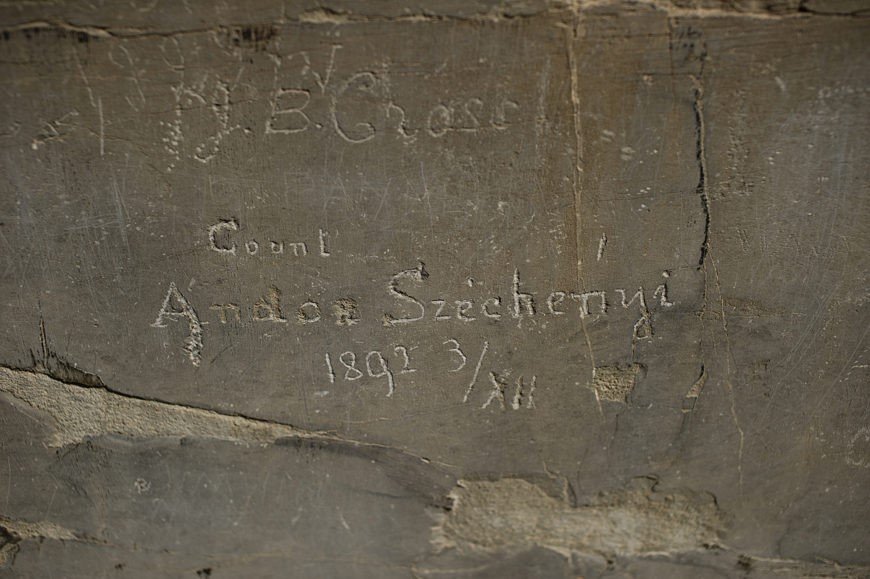 J. B. Gross
Count
Andor Széchenyi
1892 3/XII